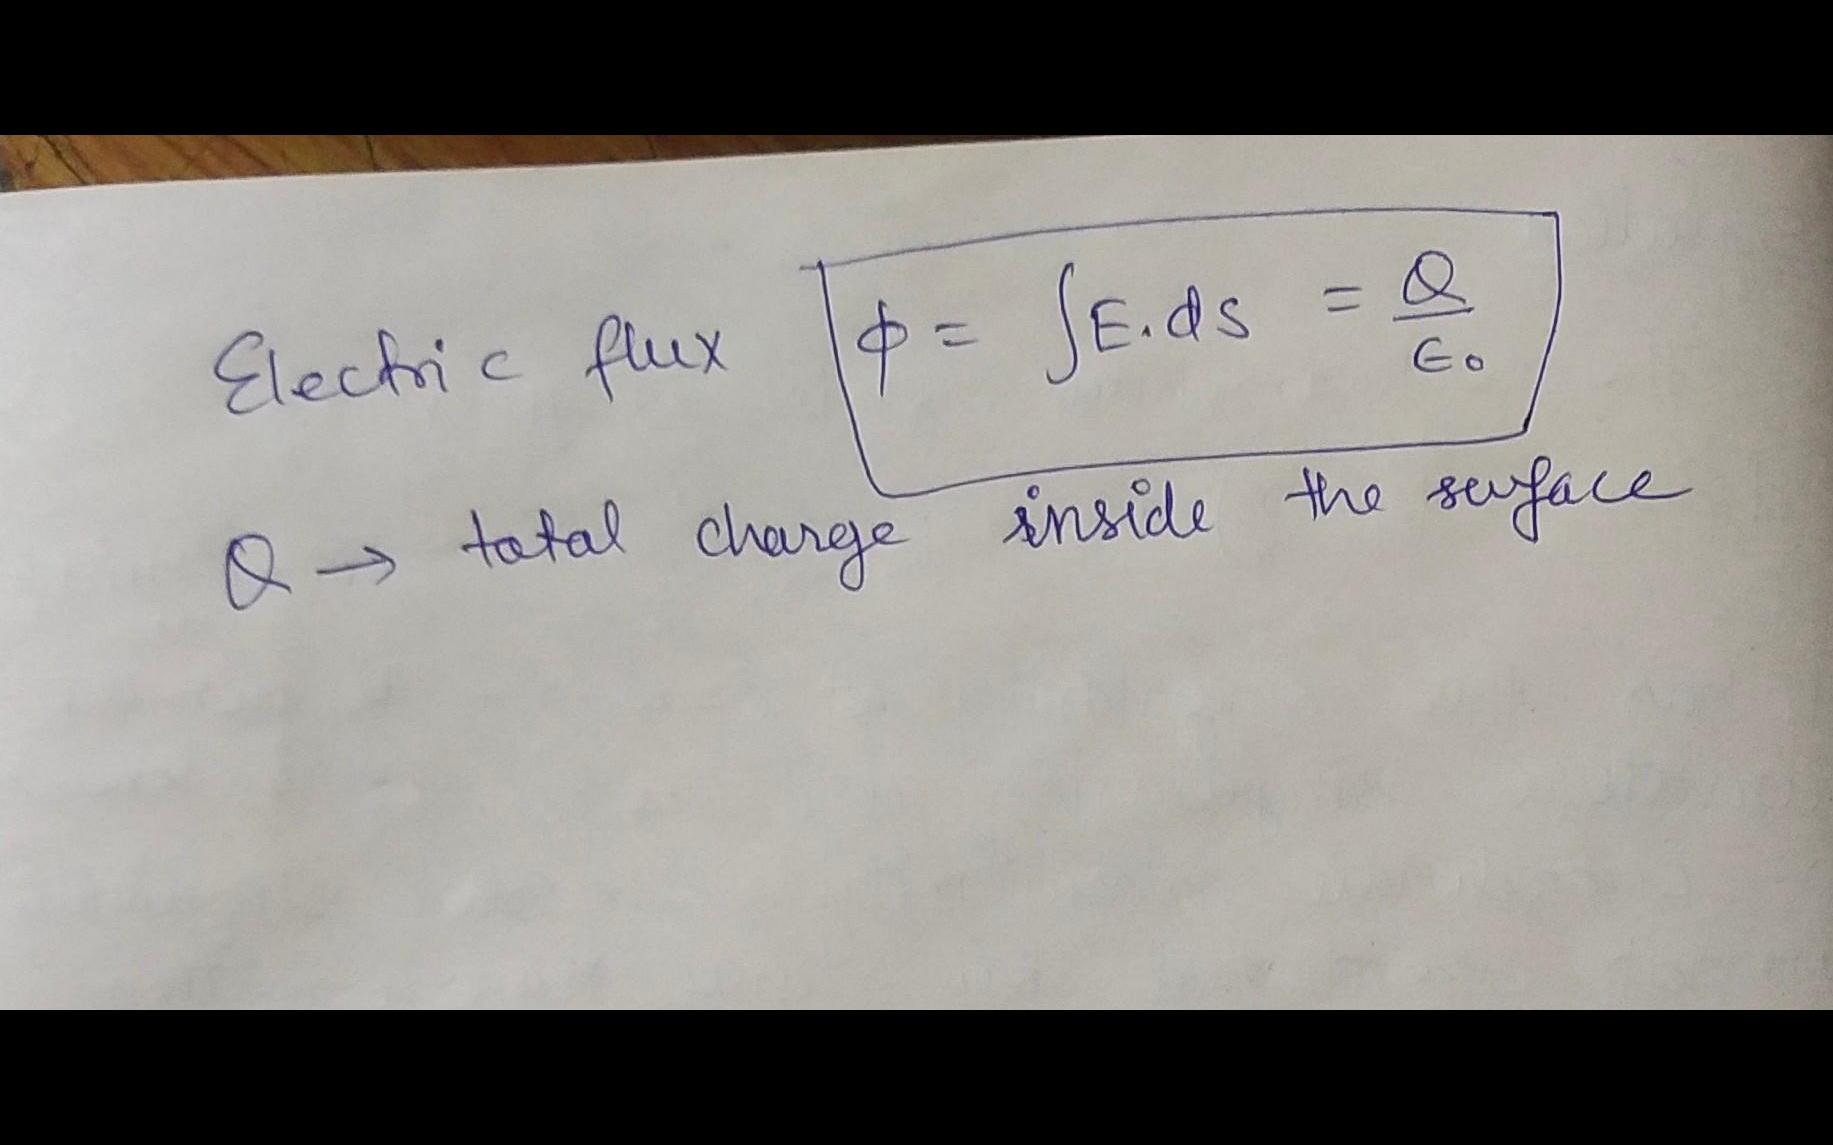 Electric flux ϕ = ∫E.ds = Q/ϵ₀
Q → total charge inside the surface